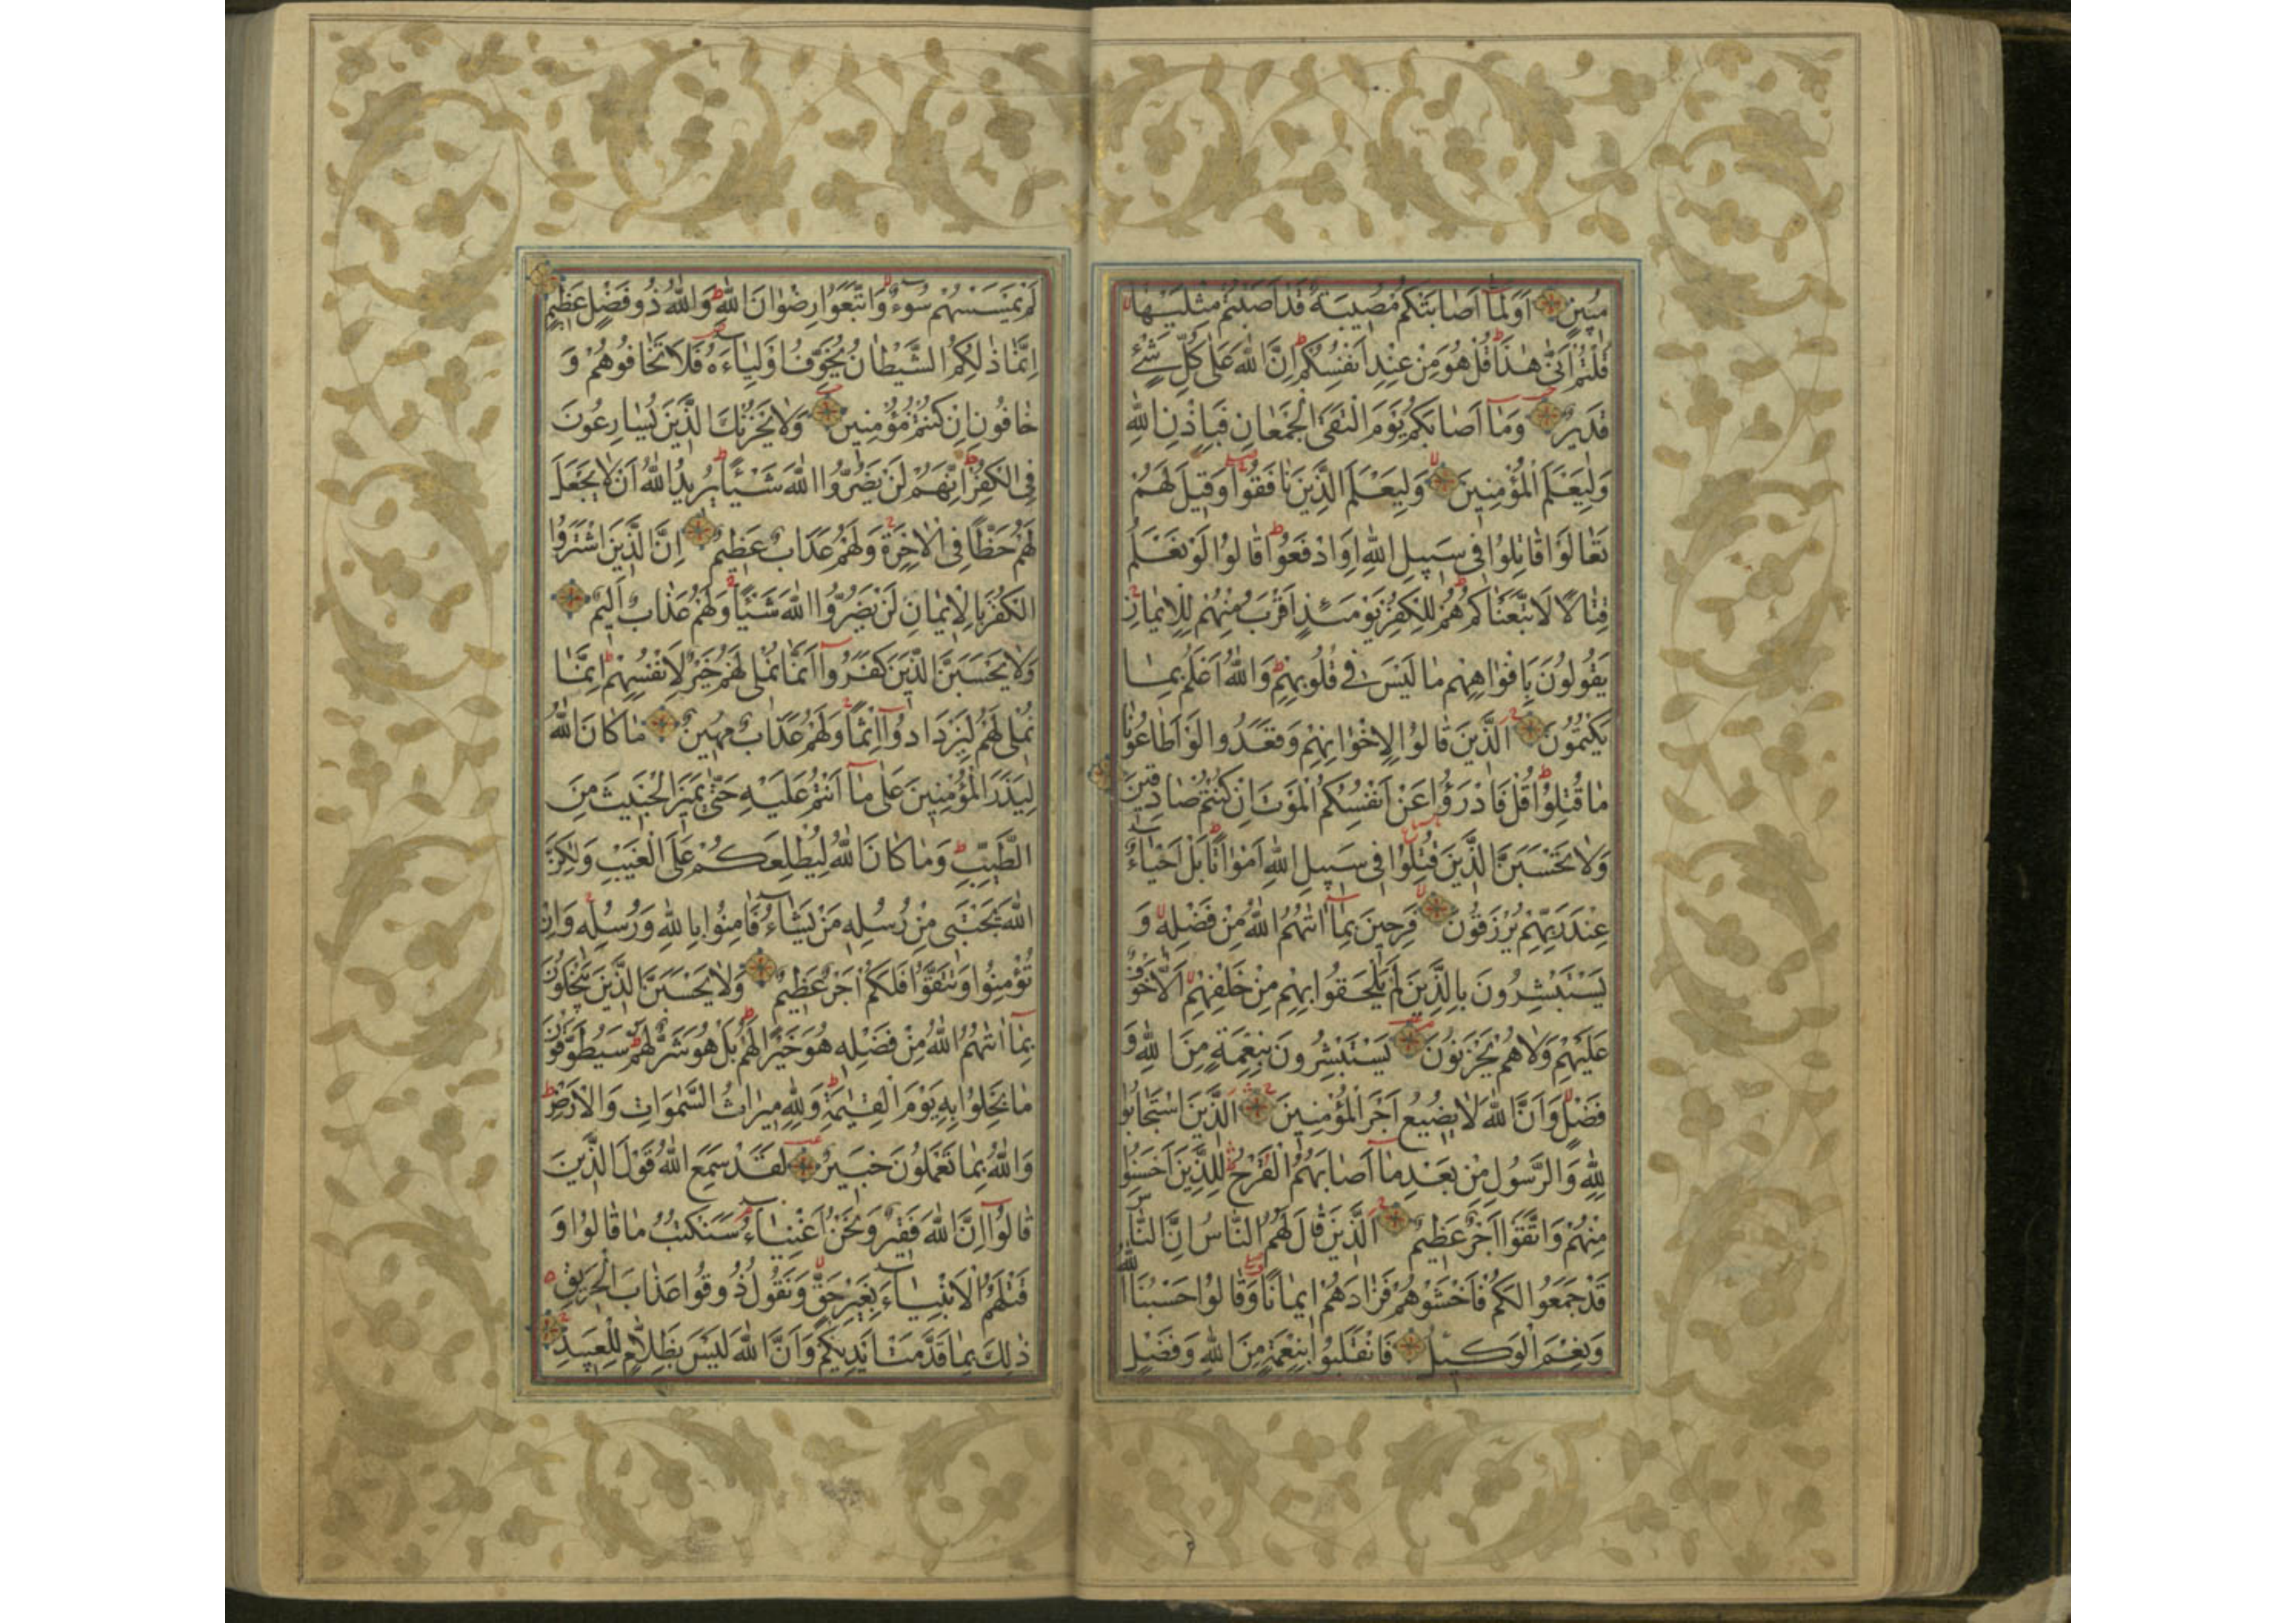 مُبِينٍ اَوَلَمَّا اَصَابَتْكُمْ مُصِيبَةٌ قَدْ اَصَبْتُمْ مِثْلَيْهَا
قُلْتُمْ اَنّٰى هٰذَا قُلْ هُوَ مِنْ عِنْدِ اَنْفُسِكُمْ اِنَّ اللّٰهَ عَلٰى كُلِّ شَيْءٍ
قَدِيرٌ وَمَا اَصَابَكُمْ يَوْمَ الْتَقَى الْجَمْعَانِ فَبِاِذْنِ اللّٰهِ
وَلِيَعْلَمَ الْمُؤْمِنِينَ وَلِيَعْلَمَ الَّذِينَ نَافَقُوا وَقِيلَ لَهُمْ
تَعَالَوْا قَاتِلُوا فِى سَبِيلِ اللّٰهِ اَوِ ادْفَعُوا قَالُوا لَوْ نَعْلَمُ
قِتَالًا لَاتَّبَعْنَاكُمْ هُمْ لِلْكُفْرِ يَوْمَئِذٍ اَقْرَبُ مِنْهُمْ لِلْاِيمَانِ
يَقُولُونَ بِاَفْوَاهِهِمْ مَا لَيْسَ فِى قُلُوبِهِمْ وَاللّٰهُ اَعْلَمُ بِمَا
يَكْتُمُونَ اَلَّذِينَ قَالُوا لِاِخْوَانِهِمْ وَقَعَدُوا لَوْ اَطَاعُونَا
مَا قُتِلُوا قُلْ فَادْرَؤُا عَنْ اَنْفُسِكُمُ الْمَوْتَ اِنْ كُنْتُمْ صَادِقِينَ
وَلَا تَحْسَبَنَّ الَّذِينَ قُتِلُوا فِى سَبِيلِ اللّٰهِ اَمْوَاتًا بَلْ اَحْيَاءٌ
عِنْدَ رَبِّهِمْ يُرْزَقُونَ فَرِحِينَ بِمَا اٰتٰهُمُ اللّٰهُ مِنْ فَضْلِهِ وَ
يَسْتَبْشِرُونَ بِالَّذِينَ لَمْ يَلْحَقُوا بِهِمْ مِنْ خَلْفِهِمْ اَلَّا خَوْفٌ
عَلَيْهِمْ وَلَا هُمْ يَحْزَنُونَ يَسْتَبْشِرُونَ بِنِعْمَةٍ مِنَ اللّٰهِ وَ
فَضْلٍ وَاَنَّ اللّٰهَ لَا يُضِيعُ اَجْرَ الْمُؤْمِنِينَ اَلَّذِينَ اسْتَجَابُوا
لِلّٰهِ وَالرَّسُولِ مِنْ بَعْدِ مَا اَصَابَهُمُ الْقَرْحُ لِلَّذِينَ اَحْسَنُوا
مِنْهُمْ وَاتَّقَوْا اَجْرٌ عَظِيمٌ اَلَّذِينَ قَالَ لَهُمُ النَّاسُ اِنَّ النَّاسَ
قَدْ جَمَعُوا لَكُمْ فَاخْشَوْهُمْ فَزَادَهُمْ اِيمَانًا وَقَالُوا حَسْبُنَا اللّٰهُ
وَنِعْمَ الْوَكِيلُ فَانْقَلَبُوا بِنِعْمَةٍ مِنَ اللّٰهِ وَفَضْلٍ
لَمْ يَمْسَسْهُمْ سُوءٌ وَاتَّبَعُوا رِضْوَانَ اللّٰهِ وَاللّٰهُ ذُو فَضْلٍ عَظِيمٍ
اِنَّمَا ذٰلِكُمُ الشَّيْطَانُ يُخَوِّفُ اَوْلِيَاءَهُ فَلَا تَخَافُوهُمْ وَ
خَافُونِ اِنْ كُنْتُمْ مُؤْمِنِينَ وَلَا يَحْزُنْكَ الَّذِينَ يُسَارِعُونَ
فِى الْكُفْرِ اِنَّهُمْ لَنْ يَضُرُّوا اللّٰهَ شَيْئًا يُرِيدُ اللّٰهُ اَنْ لَا يَجْعَلَ
لَهُمْ حَظًّا فِى الْاٰخِرَةِ وَلَهُمْ عَذَابٌ عَظِيمٌ اِنَّ الَّذِينَ اشْتَرَوُا
الْكُفْرَ بِالْاِيمَانِ لَنْ يَضُرُّوا اللّٰهَ شَيْئًا وَلَهُمْ عَذَابٌ اَلِيمٌ
وَلَا يَحْسَبَنَّ الَّذِينَ كَفَرُوا اَنَّمَا نُمْلِى لَهُمْ خَيْرٌ لِاَنْفُسِهِمْ اِنَّمَا
نُمْلِى لَهُمْ لِيَزْدَادُوا اِثْمًا وَلَهُمْ عَذَابٌ مُهِينٌ مَا كَانَ اللّٰهُ
لِيَذَرَ الْمُؤْمِنِينَ عَلٰى مَا اَنْتُمْ عَلَيْهِ حَتّٰى يَمِيزَ الْخَبِيثَ مِنَ
الطَّيِّبِ وَمَا كَانَ اللّٰهُ لِيُطْلِعَكُمْ عَلَى الْغَيْبِ وَلٰكِنَّ
اللّٰهَ يَجْتَبِى مِنْ رُسُلِهِ مَنْ يَشَاءُ فَاٰمِنُوا بِاللّٰهِ وَرُسُلِهِ وَاِنْ
تُؤْمِنُوا وَتَتَّقُوا فَلَكُمْ اَجْرٌ عَظِيمٌ وَلَا يَحْسَبَنَّ الَّذِينَ يَبْخَلُونَ
بِمَا اٰتٰهُمُ اللّٰهُ مِنْ فَضْلِهِ هُوَ خَيْرًا لَهُمْ بَلْ هُوَ شَرٌّ لَهُمْ سَيُطَوَّقُونَ
مَا بَخِلُوا بِهِ يَوْمَ الْقِيٰمَةِ وَلِلّٰهِ مِيرَاثُ السَّمٰوَاتِ وَالْاَرْضِ
وَاللّٰهُ بِمَا تَعْمَلُونَ خَبِيرٌ لَقَدْ سَمِعَ اللّٰهُ قَوْلَ الَّذِينَ
قَالُوا اِنَّ اللّٰهَ فَقِيرٌ وَنَحْنُ اَغْنِيَاءُ سَنَكْتُبُ مَا قَالُوا وَ
قَتْلَهُمُ الْاَنْبِيَاءَ بِغَيْرِ حَقٍّ وَنَقُولُ ذُوقُوا عَذَابَ الْحَرِيقِ
ذٰلِكَ بِمَا قَدَّمَتْ اَيْدِيكُمْ وَاَنَّ اللّٰهَ لَيْسَ بِظَلَّامٍ لِلْعَبِيدِ